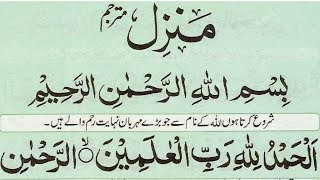 مَنزِل مترجم
بِسْمِ اللهِ الرَّحْمٰنِ الرَّحِيْمِ
شروع کرتا ہوں اللہ کے نام سے جو بڑے مہربان نہایت رحم والے ہیں۔
اَلْحَمْدُ لِلّٰهِ رَبِّ الْعٰلَمِيْنَ ۙ الرَّحْمٰنِ